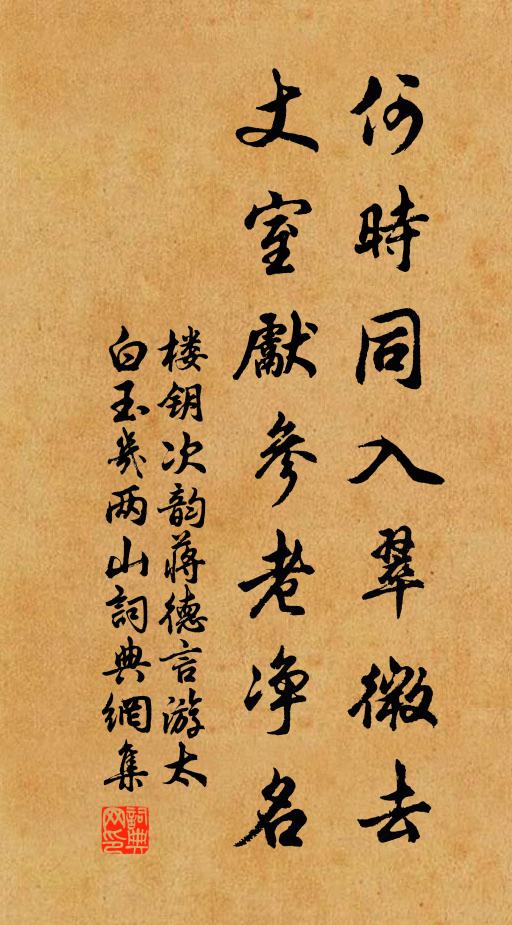 何時同入翠微去
丈室獻參老净名
楼钥次韵蒋德言游太
白玉几两山詞典網集
詞典网印